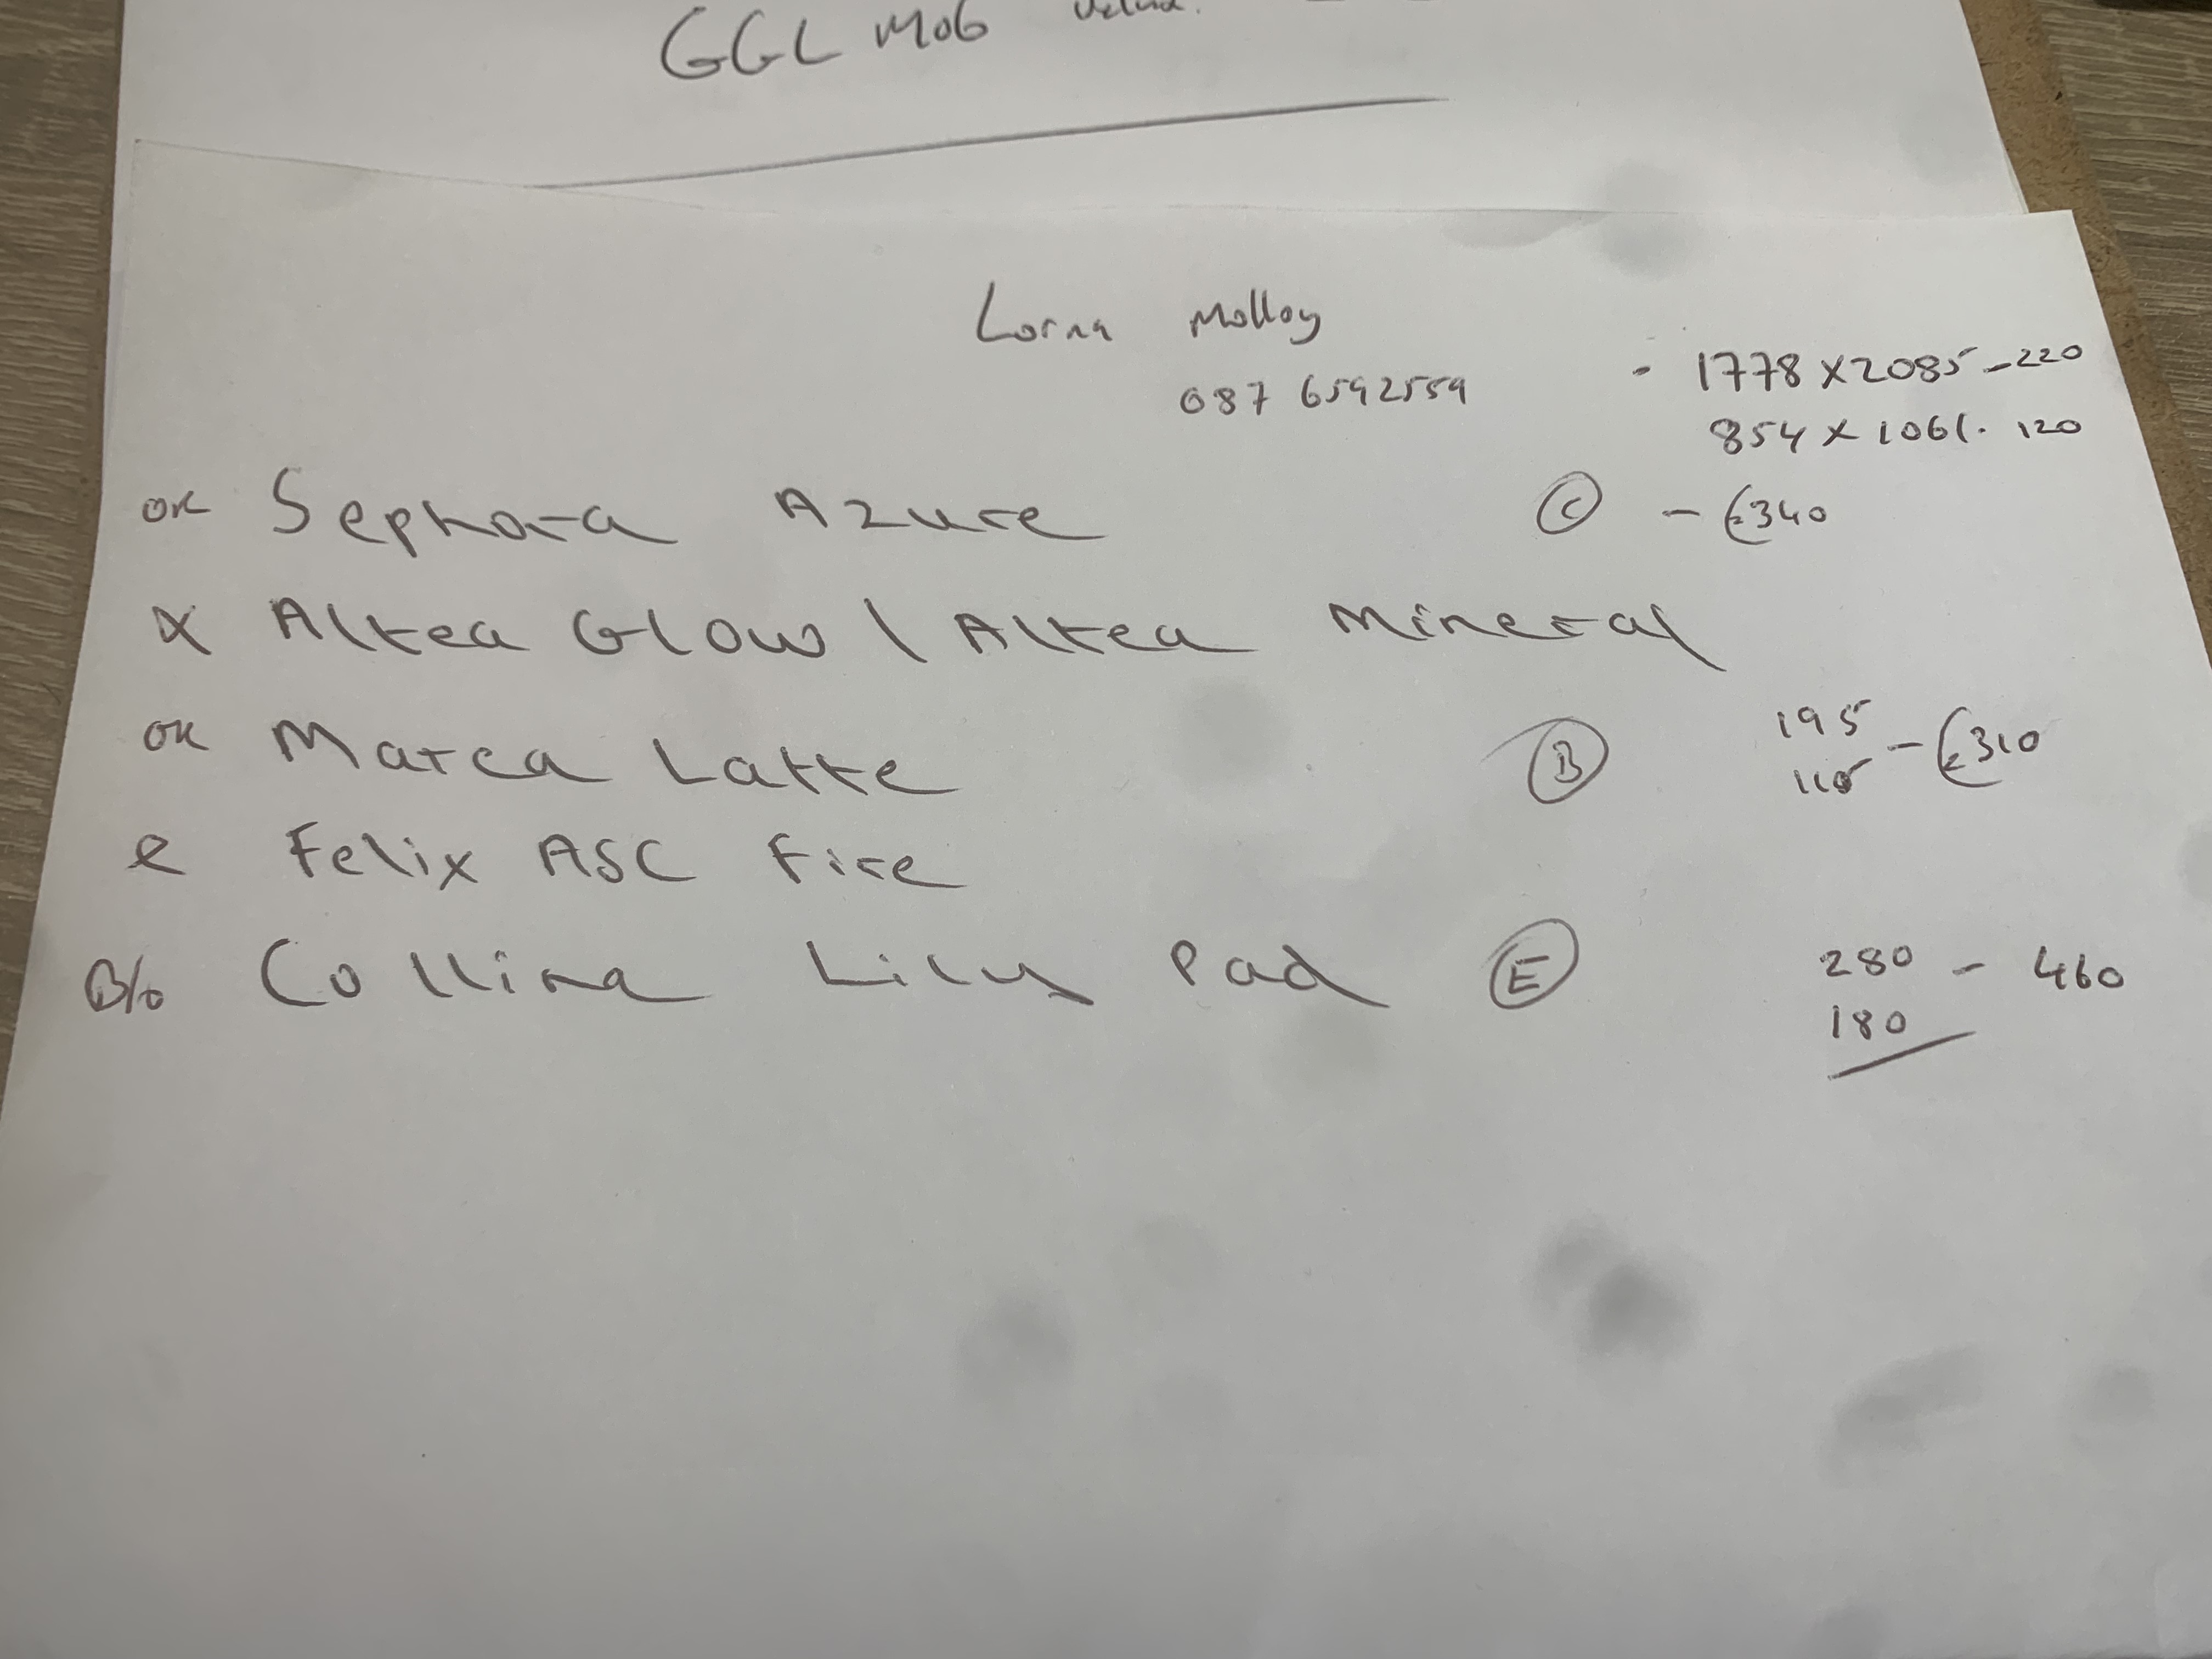 GGL MO6
Lorna Molloy
087 6592559
- 1778 x 2085 - 220
854 x 1061. 120
OK Sephora Azure C - €340
X Altea Glow \ Altea Mineral
OK Marea Latte B 195
110 - €310
Felix ASC Fire
B/o Collina Lily Pad E 280 - 460
180